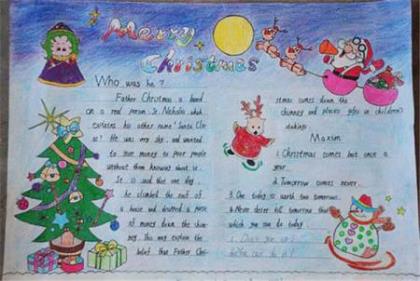 Merry
Christmas
Who was he?
Father Christmas a based
on a real person S. Nicholas which
explains his other name "Santa Cla-
us" He was very shy and wanted
to give money to poor people
without them knowing about it.
It is said that one day,
he climbed the roof of
a house and dropped a purse
of money down the chim-
ney. This may explain the
belief that Father Chri-
stmas comes down the
chimney and places gifts in children's
stockings.
Maxim
1. Christmas comes but once a
year.
2. Tomorrow comes never.
3. One today is worth two tomorrows.
4. Never defer till tomorrow that
which you can do today.